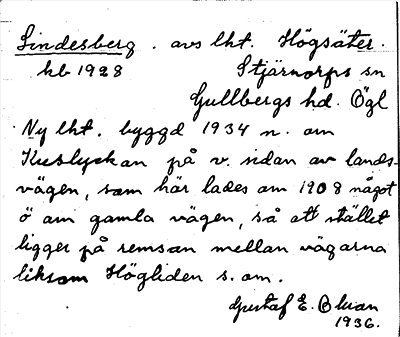 Lindesberg. avs lht. Högsäter.
kb 1928 Stjärnorps sn
Gullbergs hd. Ögl
Ny lht. byggd 1934 n. om
Kuslyckan på v. sidan av lands-
vägen, som här lades om 1908 något
ö om gamla vägen, så att stället
ligger på remsan mellan vägarna
liksom Högliden s. om.
Gustaf E.
1936.